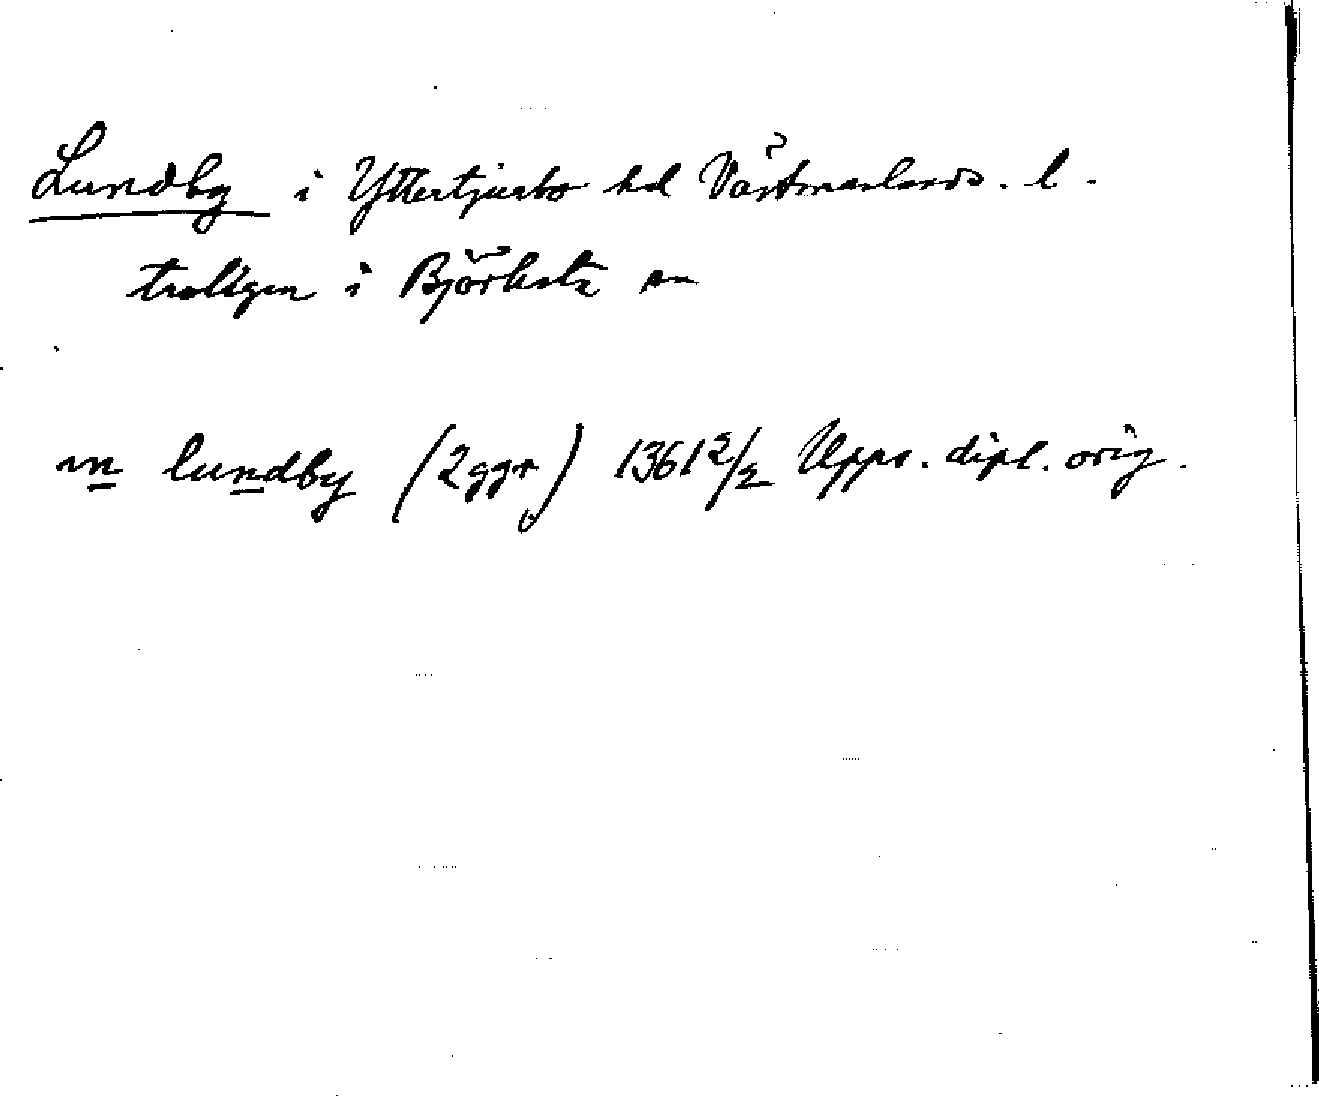 Lundby i Yttertjurbo hd Västmanlands. l.
troligen i Björksta sn
in lundby (2ggr) 1361 2/2 Upps. dipl. orig.